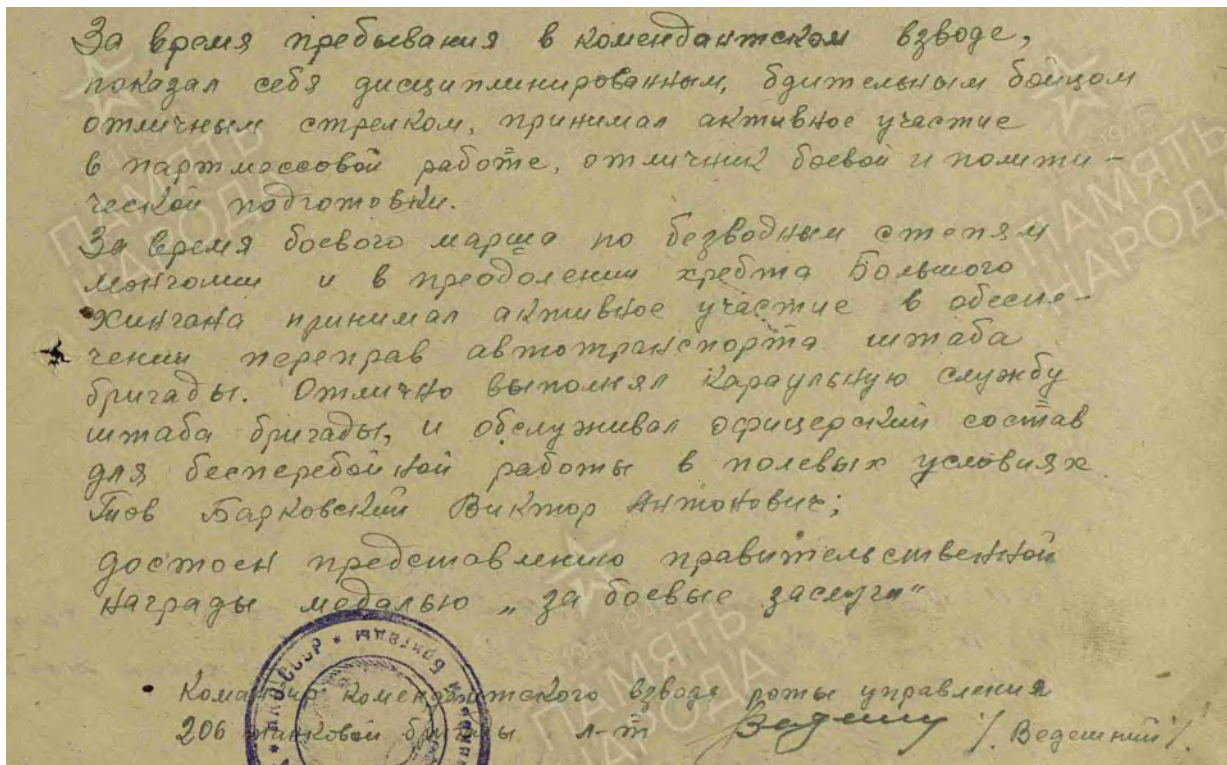 За время пребывания в комендантском взводе,
показал себя дисциплинированным, бдительным бойцом
отличным стрелком, принимал активное участие
в партмассовой работе, отличник боевой и полити-
ческой подготовки.
За время боевого марша по безводным степям
монголии и в преодолении хребта Большого
Хингана принимал активное участие в обеспе-
чении переправ автотранспорта штаба
бригады. Отлично выполнял караульную службу
штаба бригады, и обслуживал офицерский состав
для бесперебойной работы в полевых условиях
Тов Барковский Виктор Антонович;
достоен представлению правительственной
награды медалью „за боевые заслуги"
Командир комендантского взвода роты управления
206 танковой бригады л-т /Ведешний/.
ПАМЯТЬ
НАРОДА
ПАМЯТЬ
НАРОДА
ПАМЯТЬ
НАРОДА